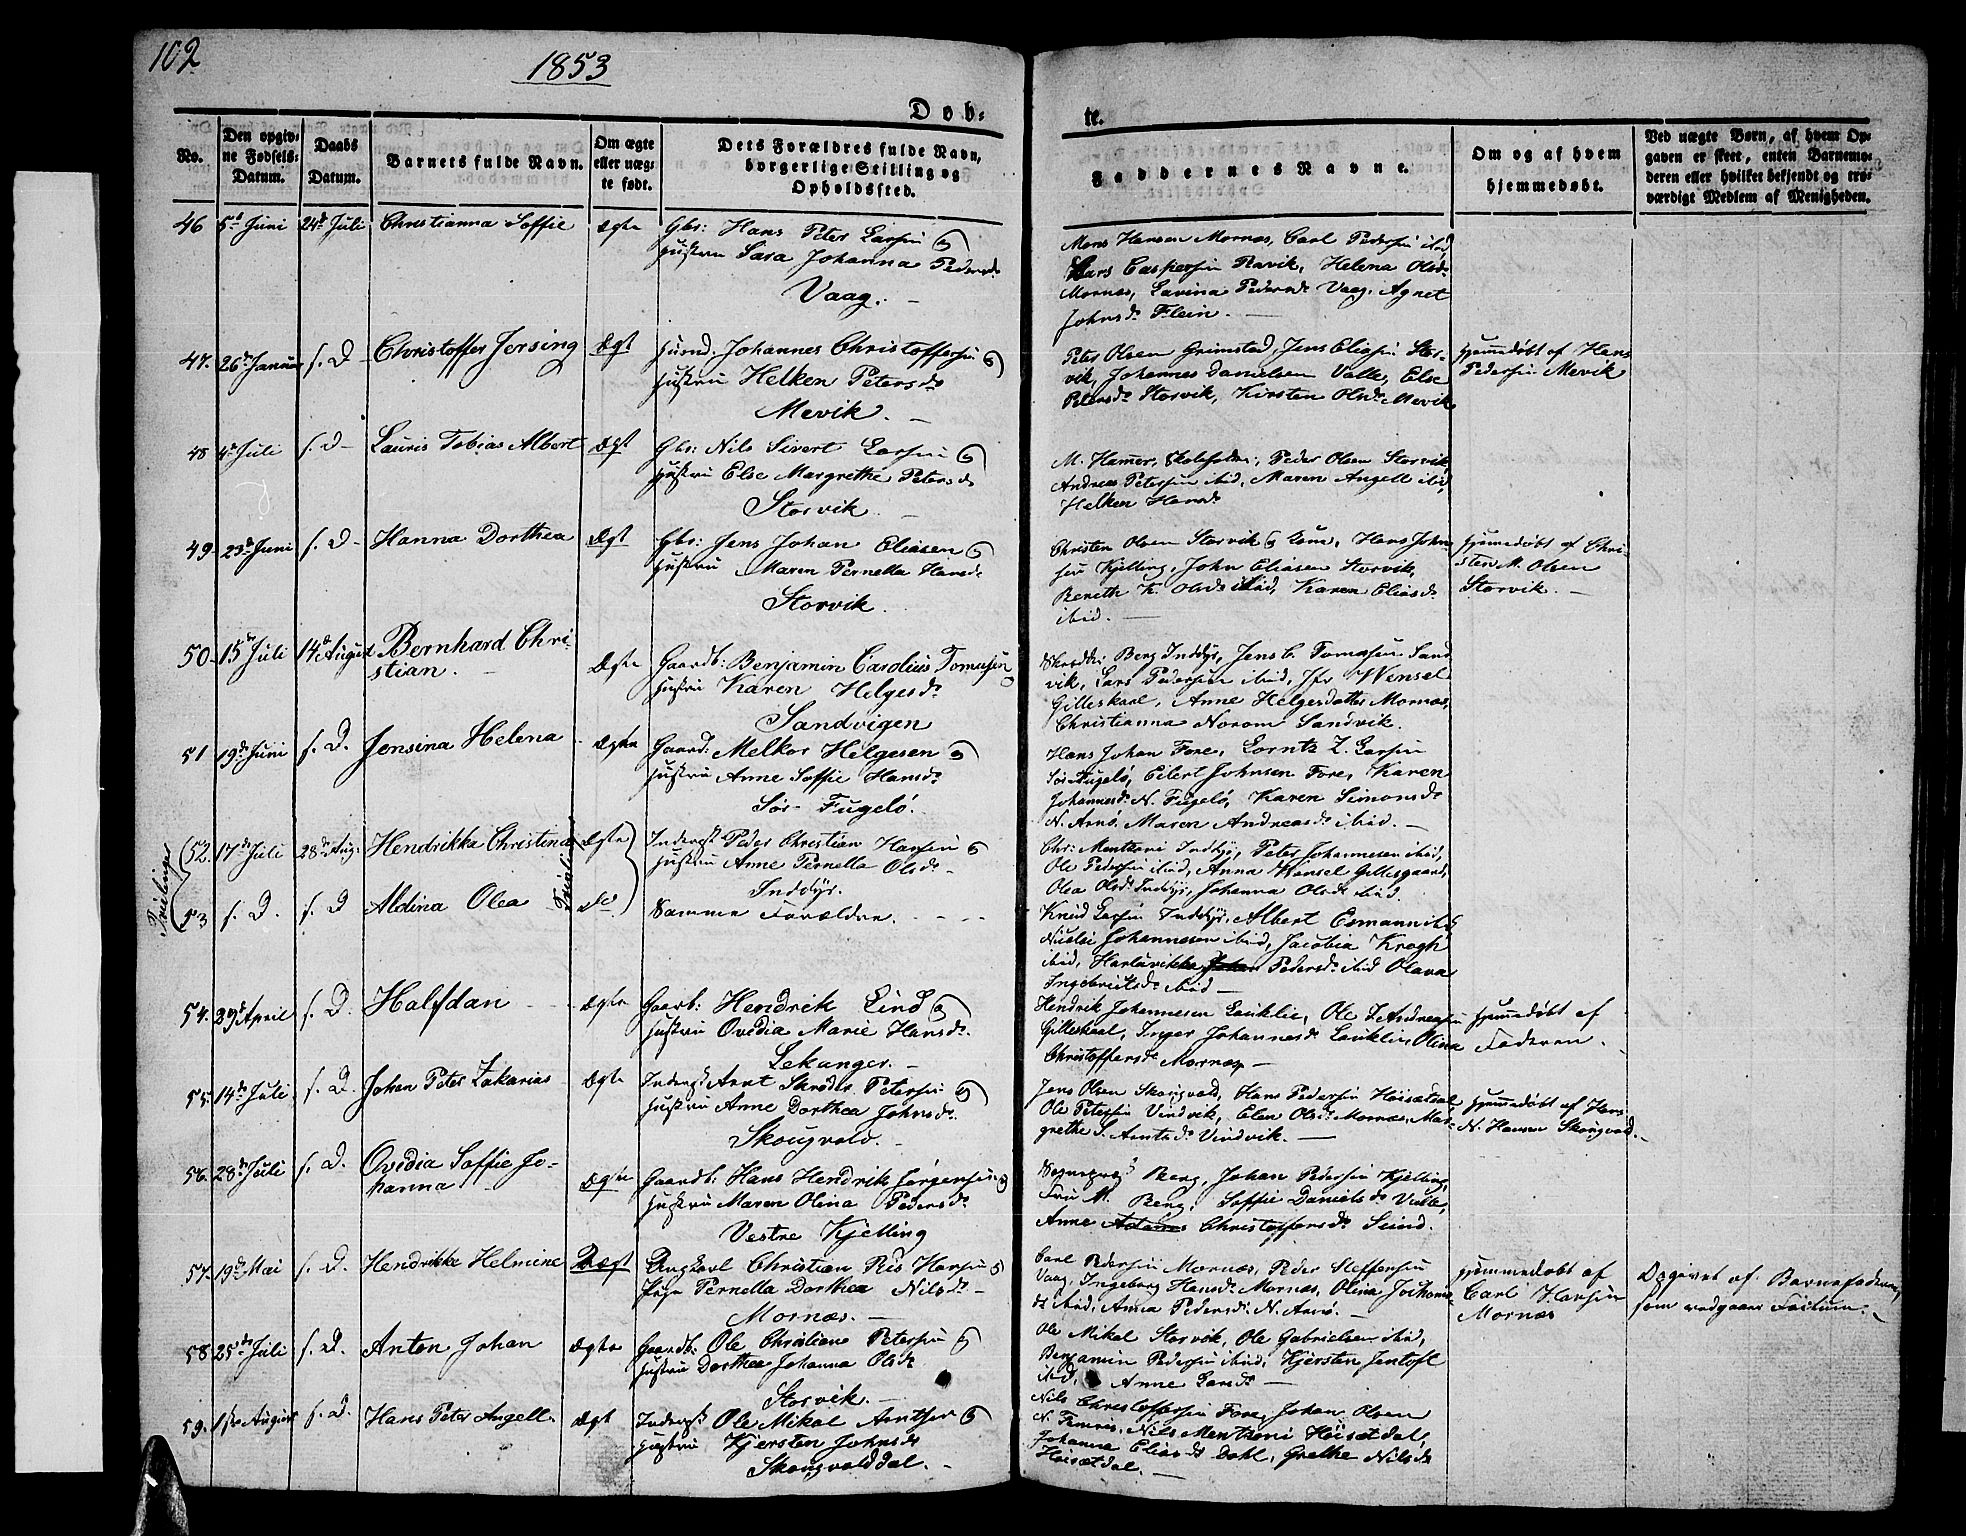 102
1853
Døb-
te.
No.
Den opgiv-
ne Fødsels-
Datum.
Daabs
Datum.
Barnets fulde Navn.
Om ægte
eller uæg-
te født.
Dets Forældres fulde Navn,
borgerlige Stilling og
Opholdssted.
Faddernes Navne.
Om og af hvem
hjemmedøbt.
Ved uægte Børn, af hvem Op-
gaven er skeet, enten Barnemo-
deren eller hvilket bekjendt og tro-
værdigt Medlem af Menigheden.
46 5te Juni 24de Juli Christianna Soffie ægte Gbr: Hans Peter Larsen og
Hustru Sara Johanna Pedersd.
Vaag.
Mons Hansen Mornæs, Carl Pedersen ibid,
Lars Caspersen Ravik, Helena Olsd.
Mornæs, Lavina Pedersd. Vaag, Agnet
Johnsd. Flein.
47. 26de Januar s. D. Christoffer Jersing Ægt Huusmd: Johannes Christoffersen og
Hustru Helken Petersd.
Mevik.
Peter Olsen Grimstad, Jens Eliasen Stor-
vik, Johannes Danielsen Valle, Else
Petersd. Storvik, Kirsten Olsd. Mevik
Hjemmedøbt af Hans
Pedersen Mevik
48 4de Juli s. D. Lauris Tobias Albert Ægt Gbr: Nils Sivert Larsen og
Hustru Else Margrethe Petersd.
Storvik.
M. Hamer, Skoleholder, Peder Olsen Storvik,
Andreas Petersen ibid, Maren Angell ibid,
Helken Hansd.
49. 23de Juni s. D. Hanna Dorthea Ægt Gbr: Jens Johan Eliasen og
Hustru Maren Pernella Hansd.
Storvik.
Christen Olsen Storvik og Kone, Hans John-
sen Kjelling, John Eliasen Storvik,
Bereth K. Olsd. ibid, Karen Eliasd.
ibid.
Hjemmedøbt af Chri-
sten M. Olsen
Storvik.
50. 15de Juli 14de August Bernhard Chri-
stian. Ægte Gaardb: Benjamin Carolius Tomasen og
Hustru Karen Helgesd.
Sandvigen
Berg Inddyr, Jens C. Tomasen Sand
vik, Lars Pedersen ibid, Jfr Wensel
Gilleskaal, Anne Helgesdatter Mornæs,
Christianna Norom Sandvik.
51 19de Juni s. D. Jensina Helena Ægte Gaardb: Melkor Helgesen og
Hustru Anne Soffie Hansd.
Sør-Fugelø.
Hans Johan Fore, Lornts Z. Larsen
Sør Fugelø, Eilert Johnsen Fore, Karen
Johannesd. N. Fugelø, Karen Simonsd.
N. Arnø, Maren Andreasd. ibid.
Tvillinger
52. 17de Juli 28de Aug. Hendrikka Christina Ægte Inderst Peder Christian Hansen og
Hustru Anne Pernella Olsd.
Inddyr.
Chr: Mentsoni Inddyr, Peter Johannesen ibid,
Ole Pedersen ibid, Anna Wensel Gillesgaard,
Olea Olsd. Inddyr, Johanna Olsd. ibid.
53 s. D. s. D Aldina Olea Tvillinger do Samme Forældre.
Knud Larsen Inddyr, Albert Esmann ibd
Nicolai Johannesen ibid, Jacobia Krogh
ibid, Hartvikka Pedersd. ibid Olava
Ingebrits d. ibid
54. 29de April s. D. Halfdan Ægte Gaardb: Hendrik Lind og
Hustru Ovidia Marie Hansd.
Lekanger.
Hendrik Johannesen Leuklie, Ole J Andreasen
Gilleskaal, Inger Johannesd. Leuklie, Olina
Christoffersd. Mornæs
Hjemmedøbt af
Faderen.
55. 14de Juli s. D. Johan Peter Zakarias Ægte Inderst Arnt Skrøder Petersen og
Hustru Anne Dorthea Johnsd.
Skougvold.
Jens Olsen Skougvold, Hans Pedersen Høisætdal,
Ole Petersen Vindvik, Elen Olsd. Mornæs, Mar-
grethe S. Arntsd. Vindvik.
Hjemmedøbt af Hans
N. Hansen Skougvold.
56. 28de Juli s. D. Ovidia Soffie Jo-
hanna Ægte Gaardb: Hans Hendrik Jørgensen og
Hustru Maren Olina Pedersd.
Vestre Kjelling
Sognepræst Berg, Johan Pedersen Kjelling,
Fru M. Berg, Soffie Danielsd. Valle,
Anne Christoffersd. Sund.
57. 19de Mai s. D. Hendrikka Helmine Uægt Ungkarl Christian Ris Hansen og
Pige Pernella Dorthea Nilsd.
Mornæs.
Carl Pedersen Mornæs, Peder Steffensen
Vaag, Ingeborg Hansd. Mornæs, Olina Jochoms-
d. ibid, Anna Pedersd. N. Arnø.
Hjemmedøbt af
Carl Hansen
Mornæs
Opgivet af Barnefaderen,
som vedgaaer Factum.
58. 25de Juli s. D. Anton Johan Ægte Gaardb: Ole Christiane Petersen og
Hustru Dorthea Johanna Olsd.
Storvik.
Ole Mikal Storvik, Ole Gabrielsen ibid,
Benjamin Pedersen ibid, Kjersten Jentoft
ibid, Anne Larsd.
59. 1ste August s. D. Hans Peter Angell. Ægt Inderst Ole Mikal Arntsen og
Hustru Kjersten Johnsd.
Skougvolddal.
Nils Christoffersen Fore, Johan Olsen
N. Finnæs, Nils Mentsoni Høisætdal,
Johanna Eliasd. Dahl, Grethe Nilsd.
Høisætdal.